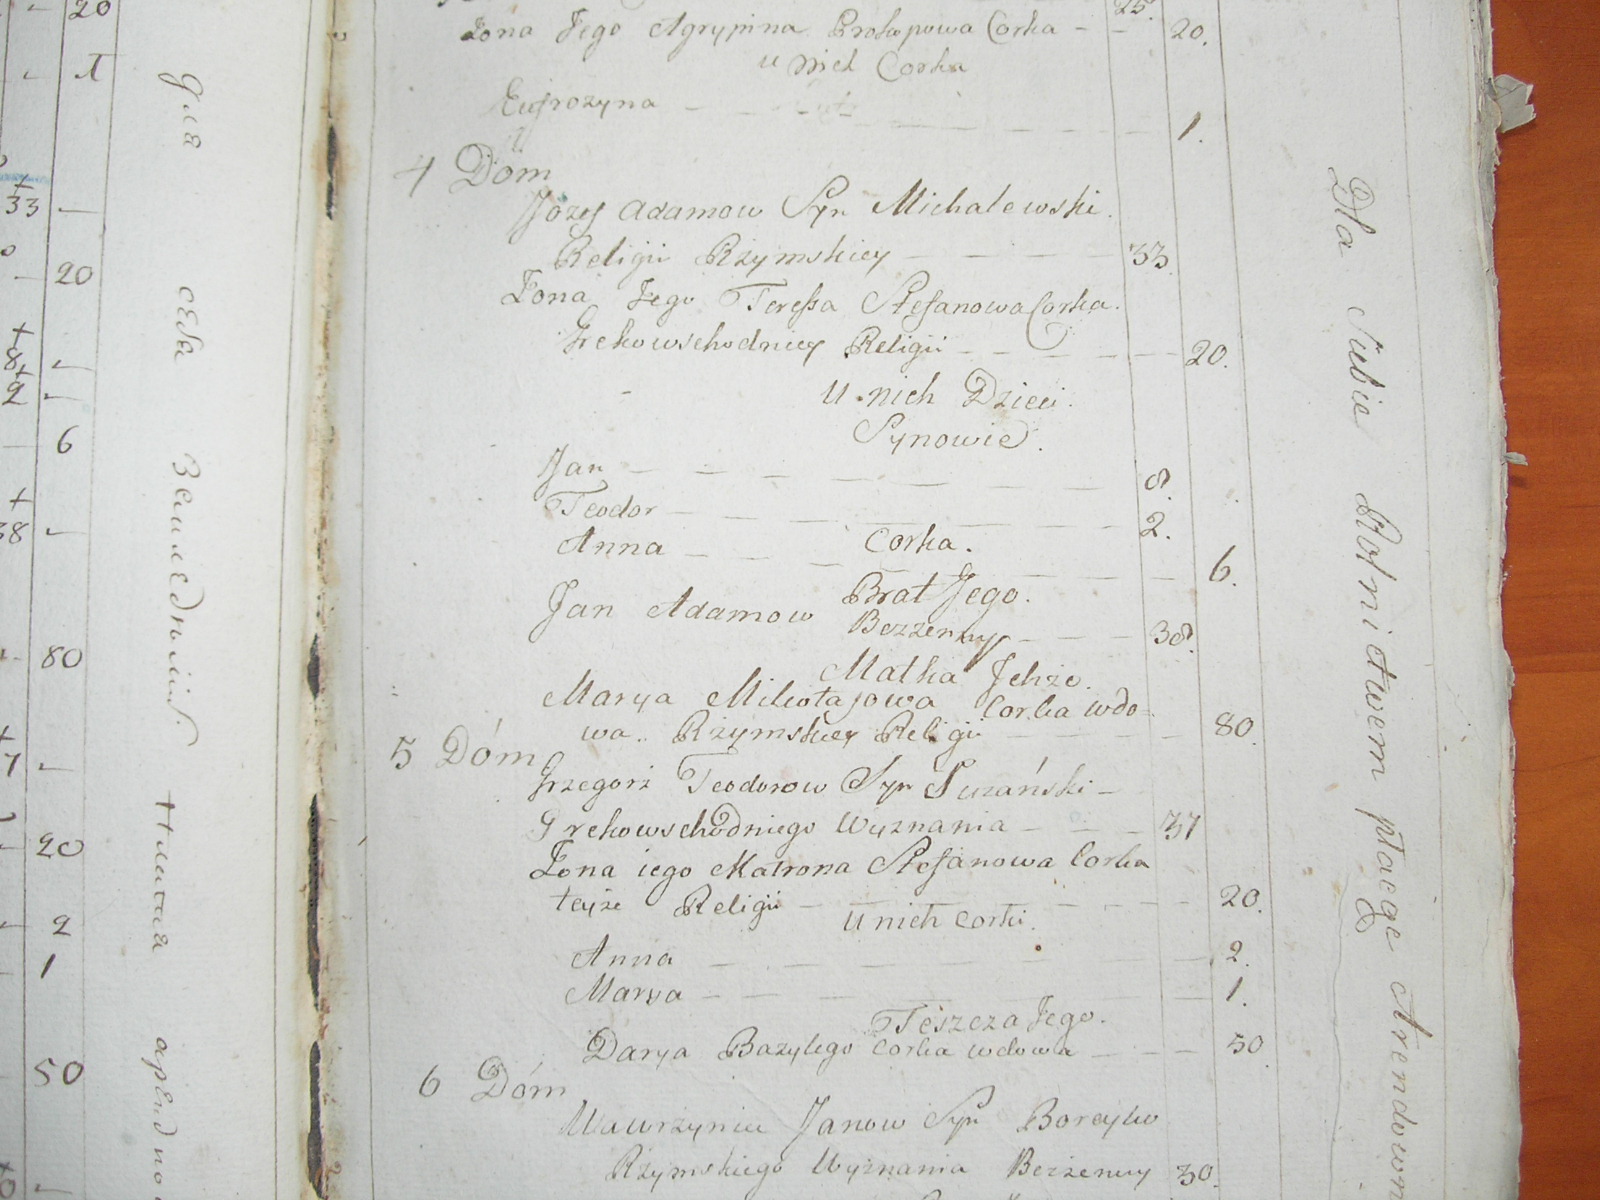 20
1
33
20
8
2
6
38
80
7
20
2
1
50
для себя
25.
Żona Jego Agrypina Prokopowa Corka 20.
u nich Corka
Eufrozyna 1.
4 Dóm
Jozef Adamow Syn Michalewski.
Religii Rzymskiey 33.
Żona Jego Teressa Stefanowa Corka.
Grekowschodniey Religii 20.
U nich Dzieci.
Synowie.
Jan 8.
Teodor 2.
Corka.
Anna 6.
Brat Jego.
Jan Adamow Bezzenny 38.
Matka Jchże.
Marya Mikołajowa Corka wdo=
wa.. Rzymskiey Religii 80.
5 Dóm
Grzegorz Teodorow Syn Suzański
Grekowschodniego Wyznania 37
Żona iego Matrona Stefanowa Corka
teyże Religii 20.
U nich Corki.
Anna 2.
Marya 1.
Teszcza Jego.
Darya Bazylego Corka wdowa 50
6 Dóm
Wawrzyniec Janow Syn
Rzymskiego Wyznania Bezzenny 30.
Dla Siebie Rolnictwem płacące